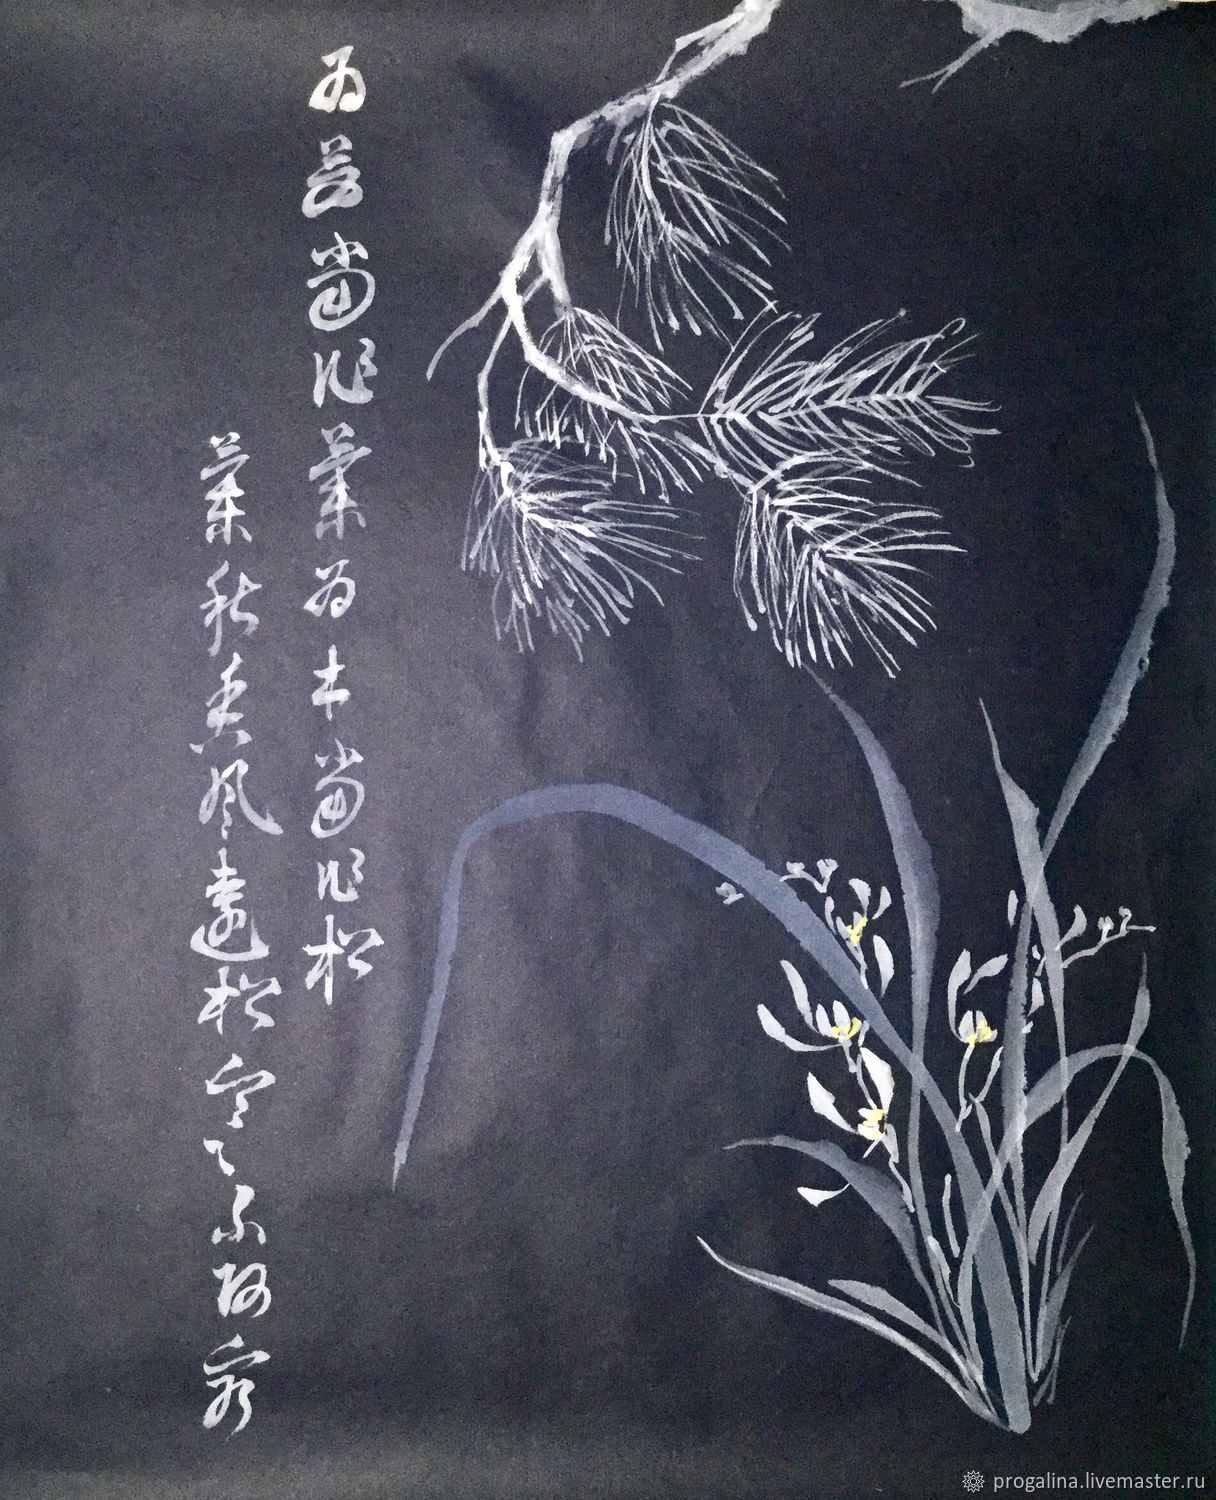 為草當作蘭為木當作松
蘭秋香風遠松寒不改容
progalina.livemaster.ru